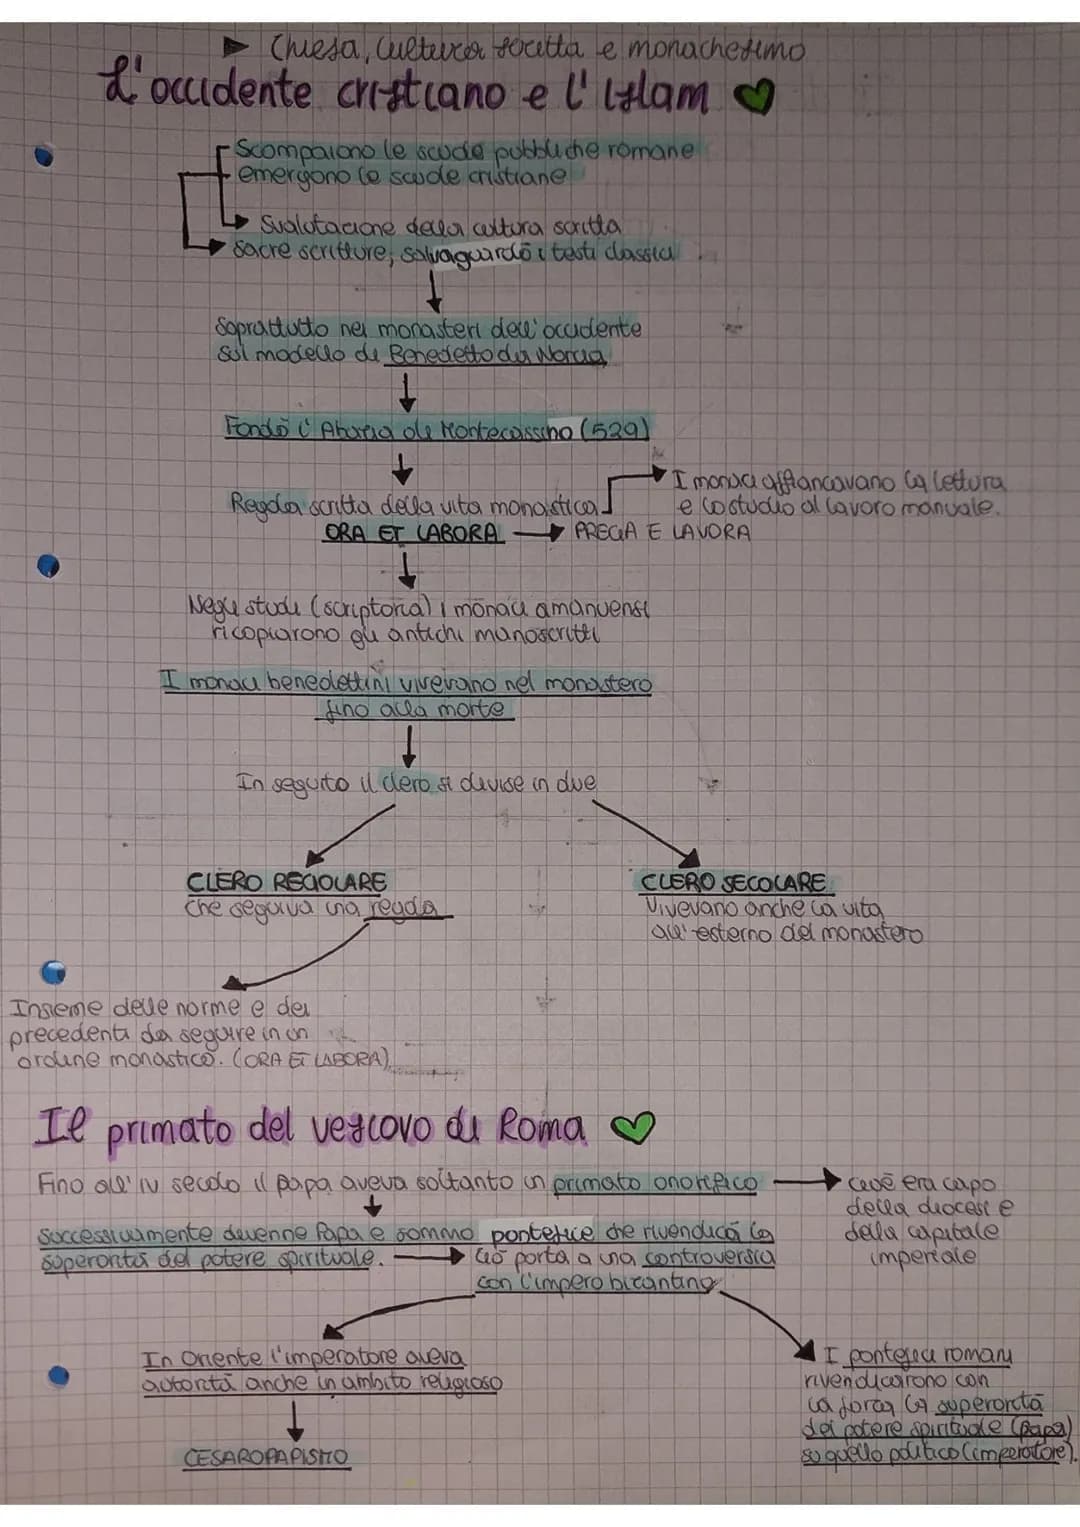 ▶ Chiesa, cultura società e monachesimo
L'occidente cristiano e l'islam
Scompaiono le scuole pubbliche romane
emergono le scuole cristiane
Svalutazione della cultura scritta
sacre scritture, salvaguardò i testi classici
Soprattutto nei monasteri dell'occidente
sul modello di Benedetto da Norcia
Fondò l'Abazia di Montecassino (529)
I monaci affiancavano la lettura
Regola scritta della vita monastica
e lo studio al lavoro manuale.
ORA ET LABORA → PREGA E LAVORA
Negli studi (scriptoria) i monaci amanuensi
ricopiarono gli antichi manoscritti
I monaci benedettini vivevano nel monastero
fino alla morte
In seguito il clero si divise in due
CLERO REGOLARE
che seguiva una regola
CLERO SECOLARE
Vivevano anche la vita
all'esterno del monastero
Insieme delle norme e dei
precedenti da seguire in un
ordine monastico. (ORA ET LABORA)
Il primato del vescovo di Roma
Fino all'IV secolo il papa aveva soltanto un primato onorifico → cioè era capo
della diocesi e
della capitale
imperiale
Successivamente divenne Papa e sommo pontefice che rivendicò la
superiorità del potere spirituale. → Ciò porta a una controversia
con l'impero bizantino
In Oriente l'imperatore aveva
autorità anche in ambito religioso
CESAROPAPISMO
I pontefici romani
rivendicarono con
la forza la superiorità
del potere spirituale (papa)
su quello politico (imperatore).